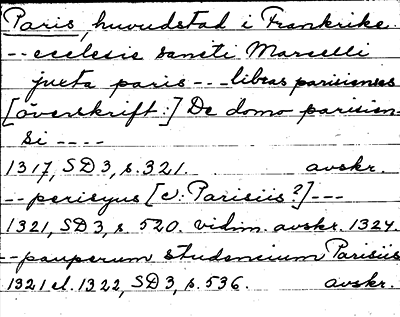 Paris, huvudstad i Frankrike.
-- ecclesie sancti Marcelli
juxta paris --- libras parisienses
[överskrift:] De domo parisien-
si ----
1317, SD3, s. 321. avskr.
-- perisyus [ɔ: Parisiis?] ---
1321, SD3, s. 520. vidim. avskr. 1324.
-- pauperum studencium Parisiis
1321 el. 1322, SD3, s. 536. avskr.